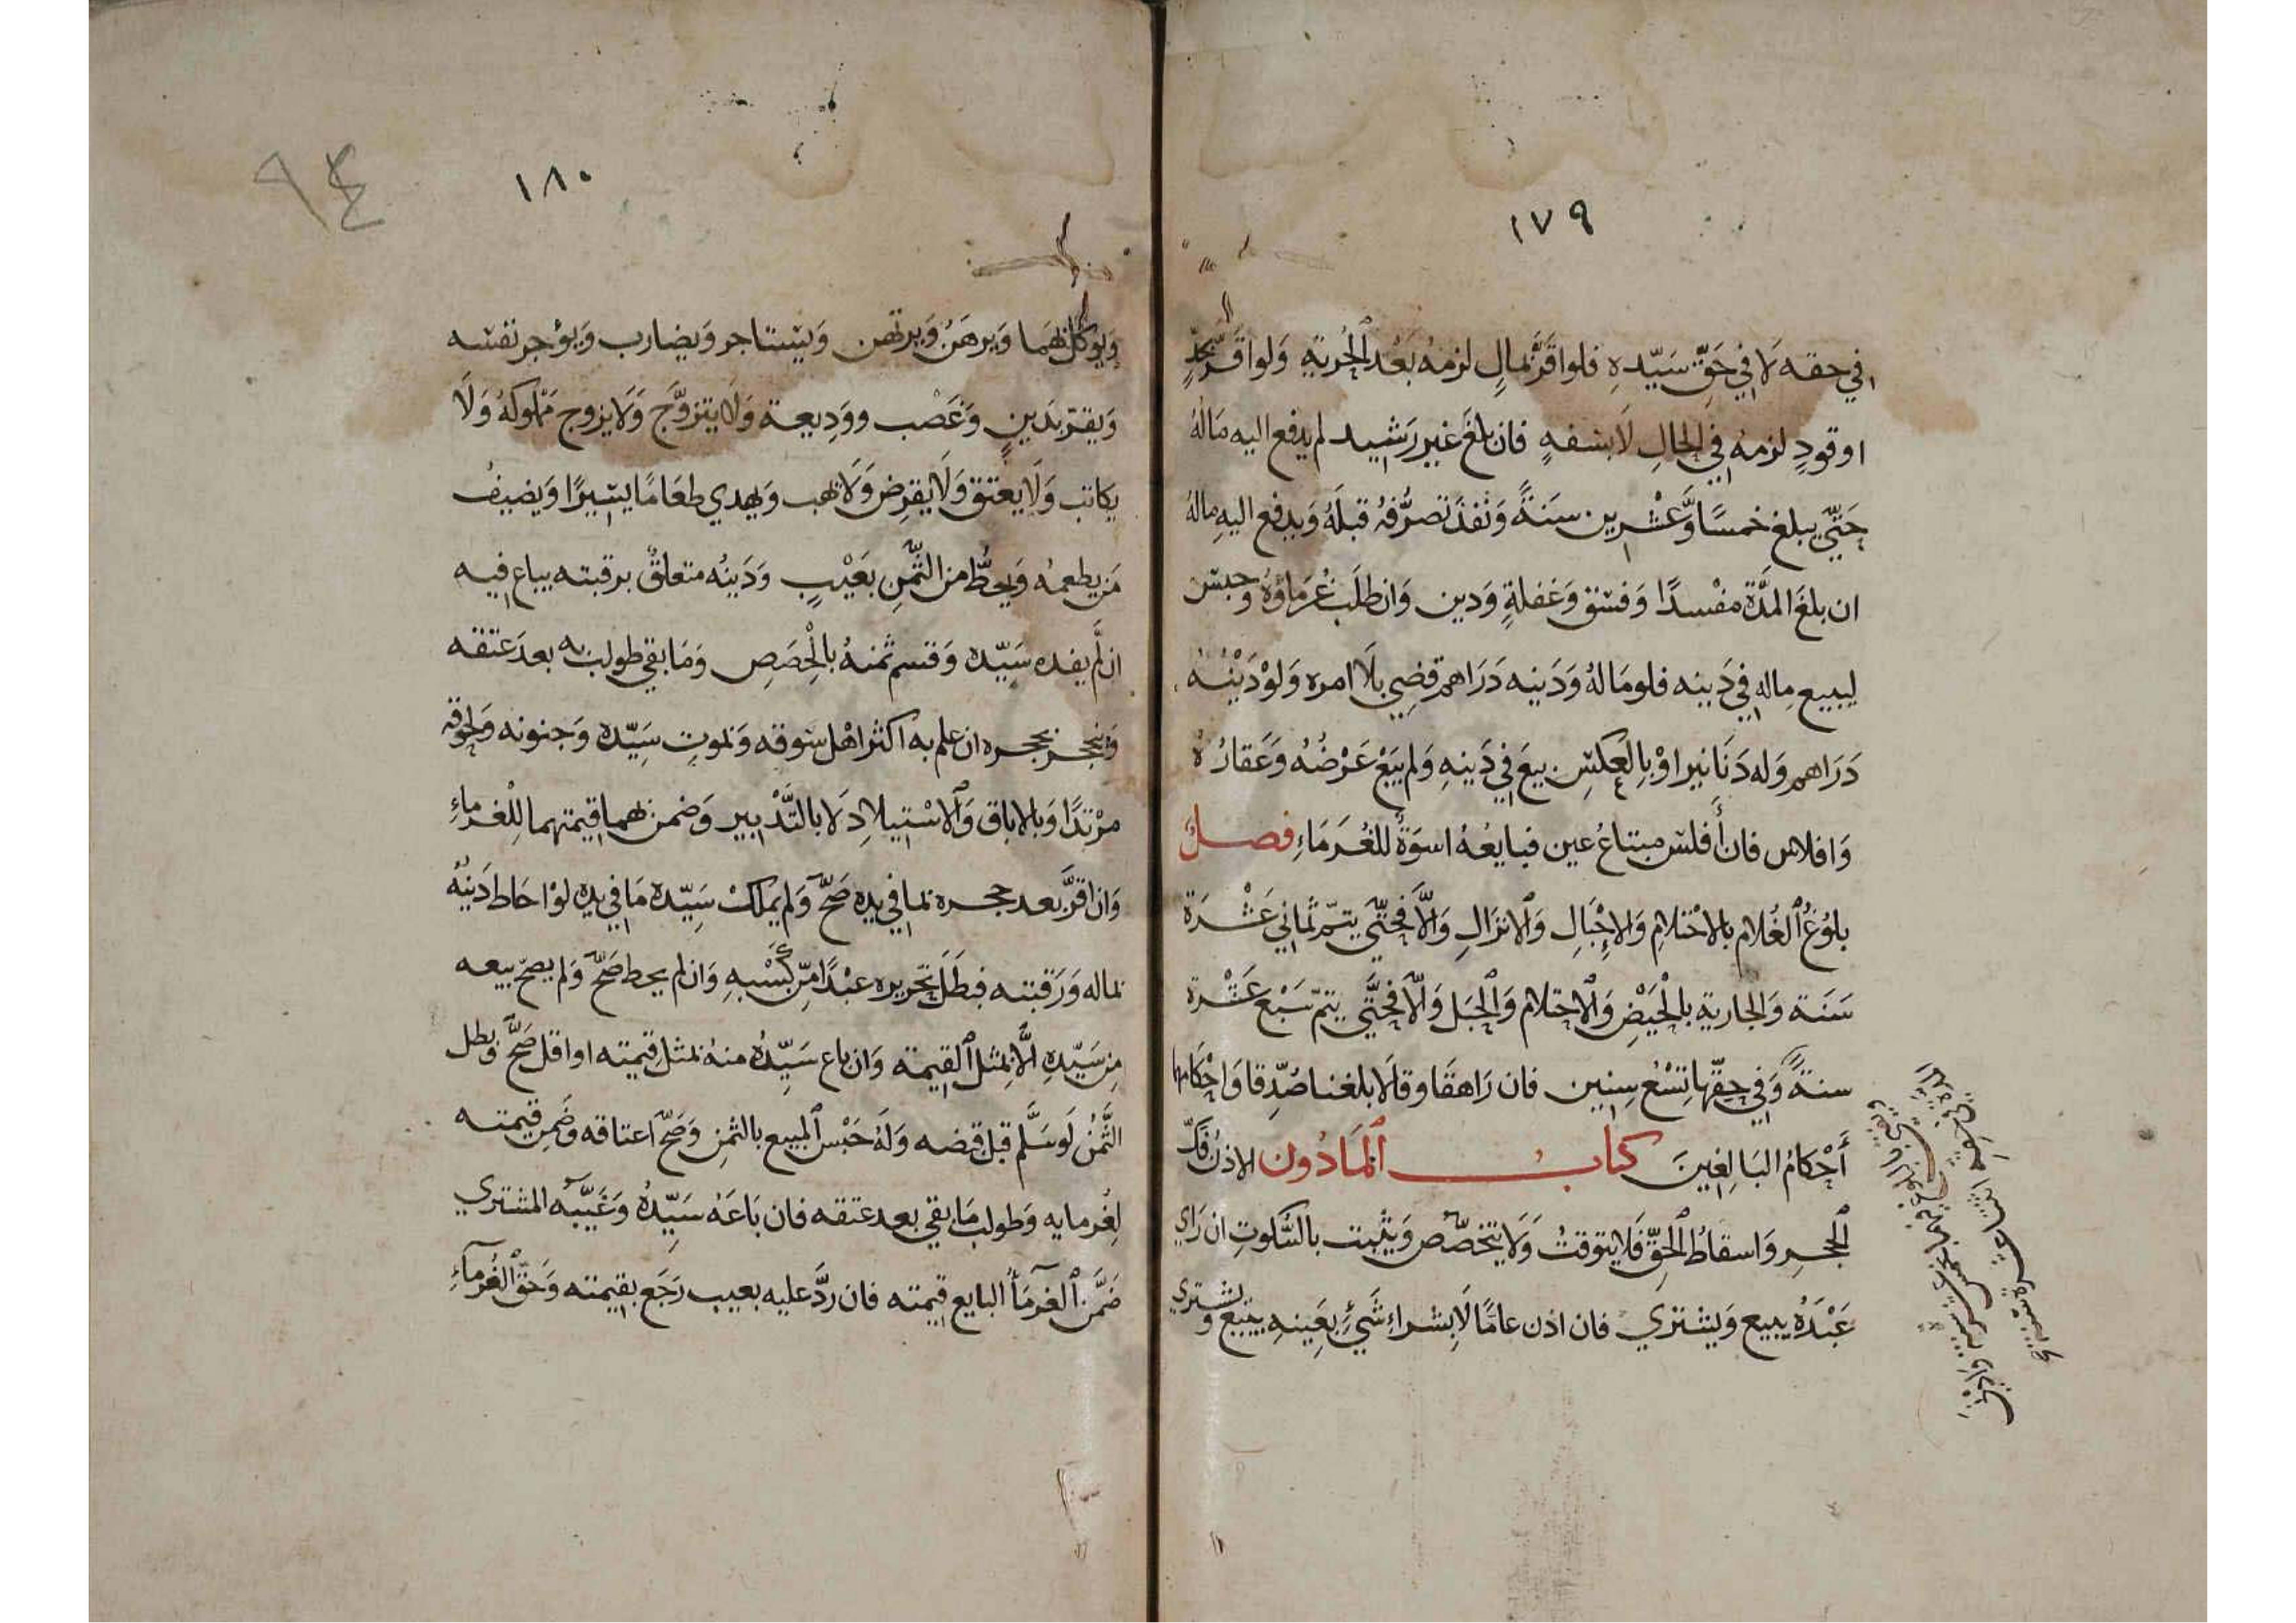 ١٧٩
في حقه لَا في حَقِّ سَيّدهِ فلو اقَرَّ بمالٍ لزمهُ بَعْد الحُرية وَلو اقَرَّ بحدٍّ
او قودٍ لزمه في الحالِ لَا بسَفهٍ فان بلغَ غير رَشيد لم يدفع اليه مَالهُ
حَتّي يبلغ خمسًا وَّعشْرين سنةً وَنفذ تصرُّفهُ قبلَهُ وَيدفع اليهِ مالهُ
ان بلغَ المدَّة مفْسدًا وَفسْق وَغفلةٍ وَدين وَان طلَبَ غُرَماؤهُ وحبسَ
ليبيع ماله في دَينه فلو مَالهُ وَدَينه دَرَاهم قضِي بلَا امره وَلوْ دَيْنُهُ
دَرَاهم وَله دَنَانير اوْ بالعكسِ بيعَ في دَينهِ وَلم يَبَعْ عَرْضُه وَعَقارُهُ
وَافلاس فان أَفلسَ مبتاعُ عين فبايعُهُ اسوَةٌ للغُرَمَاءِ فصل
بلوُغُ الغُلام بالاحْتلامِ وَالاِحْبَالِ وَالانزَالِ وَالَّا فحَتّي يتمّ ثمَاني عَشْرَة
سَنَة وَالجارية بالحَيْضِ وَالاحتلام وَالحبَل وَالّا فحَتَّي يتمّ سَبْع عَشْرة
سنةً وَفي حقّها تِسْعُ سِنين فان رَاهقَا وقالَا بلغنا صُدِّقا وَاحْكامهَا
أَحْكامُ البَالغينَ كتابُ المَاذُون الاذنُ فَكّ
الحجرِ وَاسقاطُ الحقِّ فَلَا يتوقتُ وَلَا يتخصّص وَيثبت بالسُّكوتِ ان رَاي
عَبْدَهُ يبيع وَيشتري فان اذن عامًّا لَا بشراءِ شَيءٍ بعَينهِ يبيع و يشتري
١٨٠
٩٤
وَيوكل بهمَا وَيرهَنُ وَيرتهن وَيسْتاجر وَيضارب وَيؤجر نفسَه
وَيقرّ بدَينٍ وَغَصْب ووَدِيعة وَلَا يتزوَّج وَلَا يزوج مَمْلوكهُ وَلَا
يكاتب وَلَا يعتق وَلَا يقرِض وَلَا يهب وَيهدي طعَامًا يسيرًا وَيضيفُ
مَن يطعمهُ وَيحطُّ من الثّمنِ بعَيْبٍ وَدَينُه متعلقٌ برقبته يباع فيه
ان لَّم يفده سَيّده وَقسم ثمنهُ بالحِصَصِ وَمَا بقي طولب به بعدَ عتقه
وَينحجر بحجره ان علم به اكثر اهْل سوقه وَبموت سَيّده وَجنونه وَلحوقه
مرْتدًا وَبالاباق وَالاسْتيلادِ لَا بالتَّدْبير وَضمن بهما قيمتهما للغرماءِ
وَان اقرَّ بعد حجره بما في يده صَحَّ وَلم يملك سَيّده مَا في يده لوْ احَاط دَينهُ
بماله وَرَقبته فبطلَ تحريره عبْدًا مّن كَسْبهِ وَان لم يحط صَحّ وَلم يصحّ بيعه
من سَيّدهِ الَّا بمثل القيمة وَان باع سَيّدُهُ منهُ بمثل قيمته او اقل صَحَّ وبطل
الثّمنُ لَو سَلَّم قبل قبضه وَلهُ حَبْس المبيع بالثمنِ وَصَحّ اعتاقه وَضَمِن قيمته
لغُرمايه وَطولب مَا بقي بعد عتقه فان بَاعَهُ سَيّدُهُ وَغَيَّبَه المشتري
ضَمَّن الغرمَاءُ البايع قيمته فان ردَّ عليه بعيب رَجَع بقيمته وَحَقّ الغُرماءِ